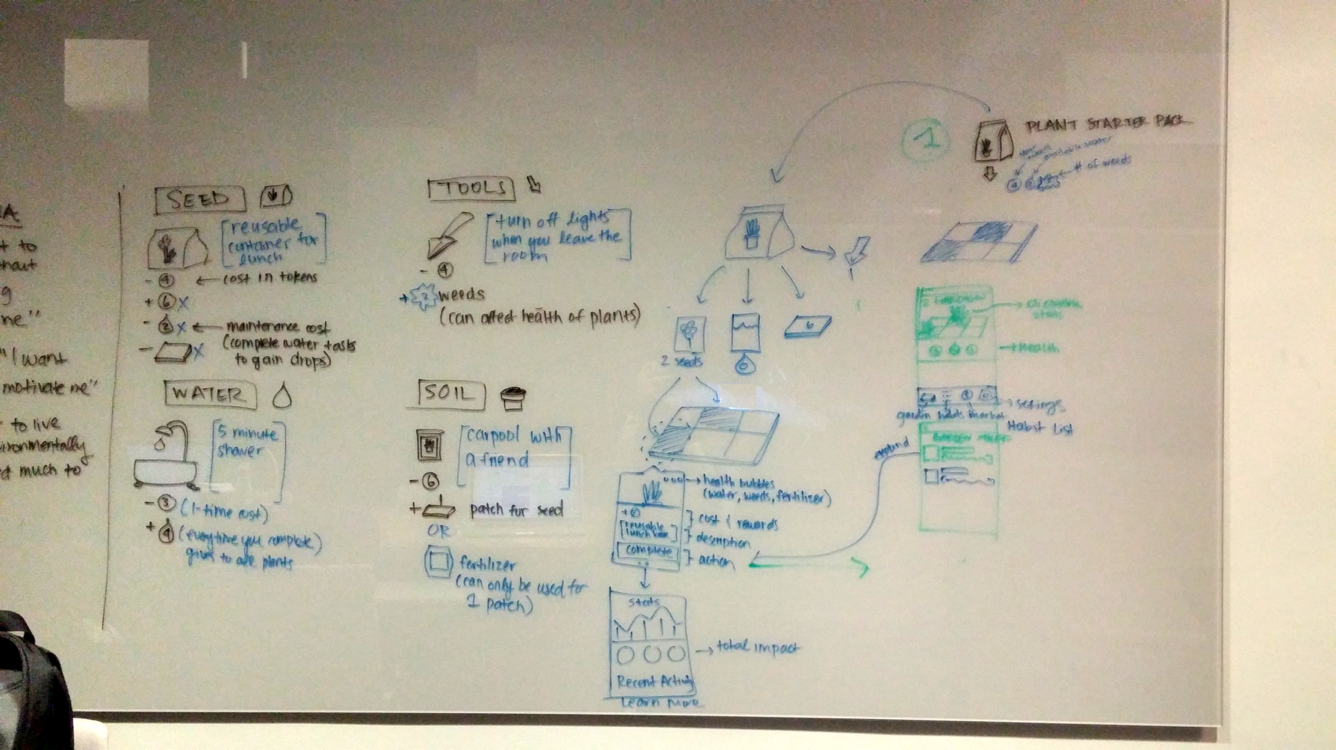 t to
g
me"
"I want
motivate me"
to live
d much to
SEED
[reusable
container for
lunch]
- 4 ← cost in tokens
+ 6 X
- 2 X ← maintenance cost
(complete water tasks
to gain drops)
- X
WATER
[5 minute
shower]
- 3 (1-time cost)
+ 4 (everytime you complete)
gives to all plants
TOOLS
[turn off lights
when you leave the
room]
- 4
+ 2 weeds
(can affect health of plants)
SOIL
[carpool with
a friend]
- 6
+ patch for seed
OR
fertilizer
(can only be used for
1 patch)
1
PLANT STARTER PACK
# of weeds
2 seeds
6
health bubbles
(water, weeds, fertilizer)
[reusable
cost & rewards
description
complete
action
Stats
total impact
Recent Activity
Learn More
Health
settings
garden habits market
Habit List